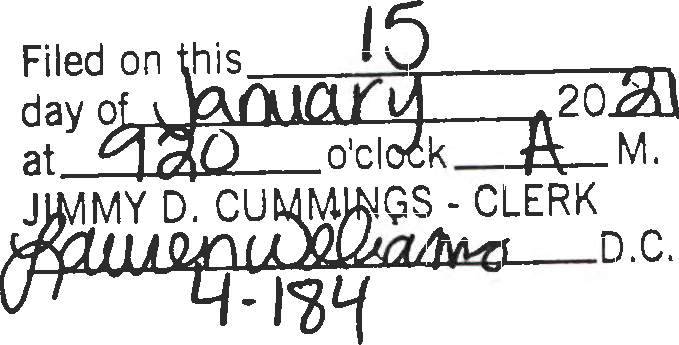 Filed on this 15
day of January 2021
at 920 o'clock A M.
JIMMY D. CUMMINGS - CLERK
Lauren Williams D.C.
4-184